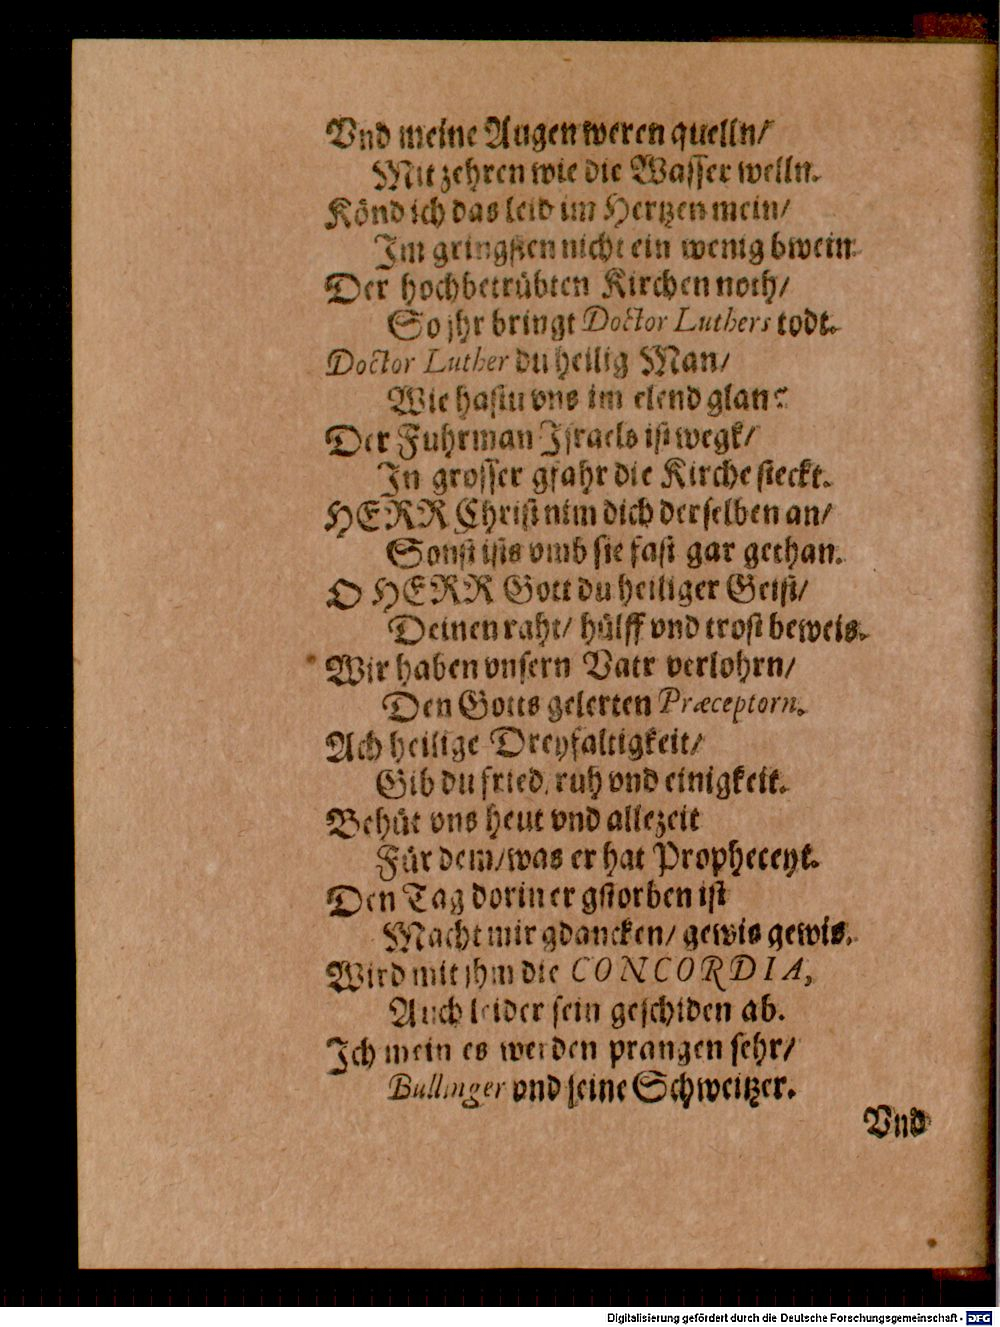 Vnd meine Augen weren quelln/
Mit zehren wie die Wasser welln.
Könd ich das leid im Hertzen mein/
Im gringsten nicht ein wenig bwein
Der hochbetrübten Kirchen noth/
So jhr bringt Doctor Luthers todt.
Doctor Luther du heilig Man/
Wie hastu vns im elend glan?
Der Fuhrman Israels ist wegk/
In grosser gfahr die Kirche steckt.
HERR Christ nim dich derselben an/
Sonst ists vmb sie fast gar gethan.
O HERR Gott du heiliger Geist/
Deinen raht/ hülff vnd trost beweis.
Wir haben vnsern Vatr verlohrn/
Den Gotts gelerten Præceptorn.
Ach heilige Dreyfaltigkeit/
Gib du fried, ruh vnd einigkeit.
Behüt vns heut vnd allezeit
Für dem/was er hat Propheceyt.
Den Tag dorin er gstorben ist
Macht mir gdancken/ gewis gewis.
Wird mit jhm die CONCORDIA,
Auch leider sein geschiden ab.
Ich mein es werden prangen sehr/
Bullinger vnd seine Schweitzer.
Vnd
Digitalisierung gefördert durch die Deutsche Forschungsgemeinschaft - DFG